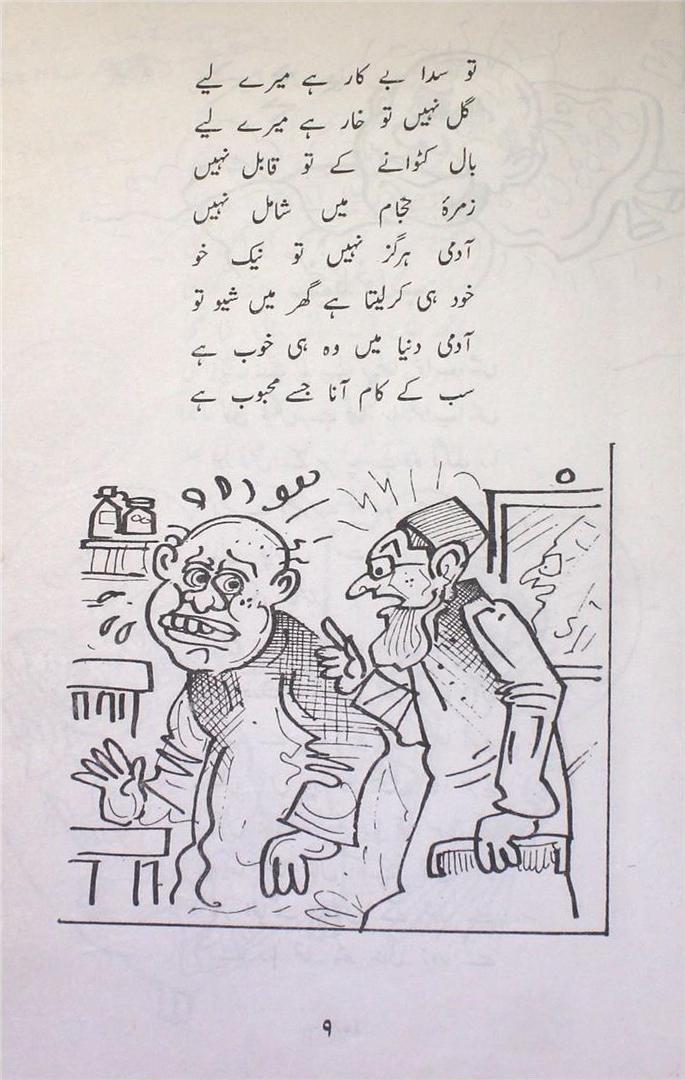 تو سدا بے کار ہے میرے لیے
گل نہیں تو خار ہے میرے لیے
بال کٹوانے کے تو قابل نہیں
زمرۂ حجام میں شامل نہیں
آدمی ہرگز نہیں تو نیک خو
خود ہی کرلیتا ہے گھر میں شیو تو
آدمی دنیا میں وہ ہی خوب ہے
سب کے کام آنا جسے محبوب ہے
۹